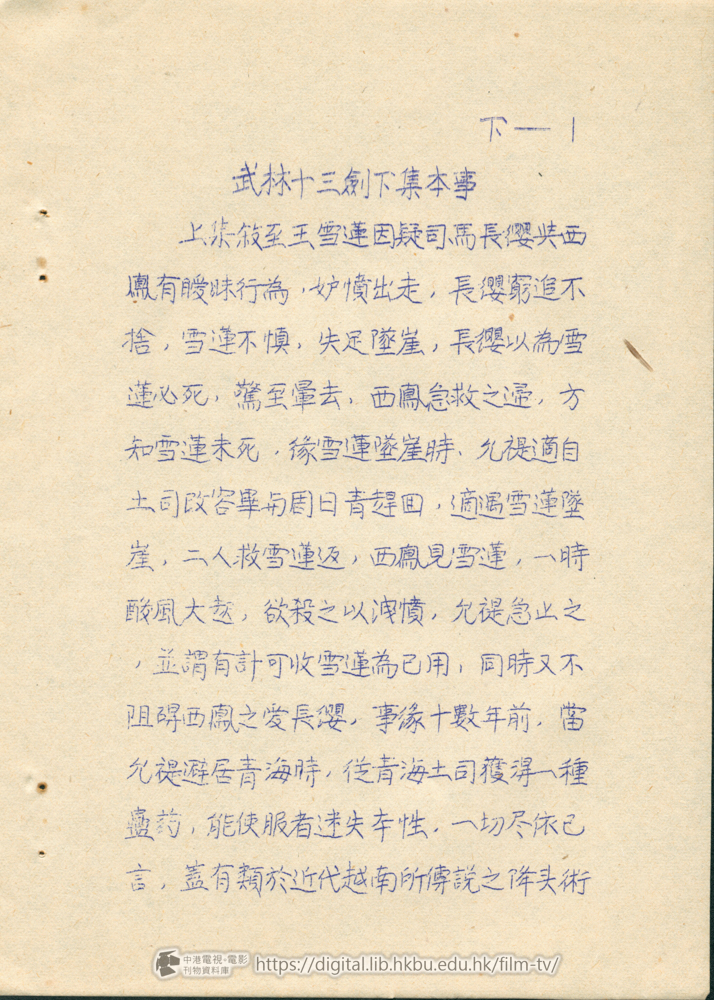 下一1
武林十三劍下集本事
上集敘至王雪蓮因疑司馬長纓與西
鳳有曖昧行為，妒憤出走，長纓窮追不
捨，雪蓮不慎，失足墜崖，長纓以為雪
蓮必死，驚至暈去，西鳳急救之還，方
知雪蓮未死，緣雪蓮墜崖時，允禔適自
土司改容畢与周日青趕回，適遇雪蓮墜
崖，二人救雪蓮返，西鳳見雪蓮，一時
酸風大起，欲殺之以洩憤，允禔急止之
，並謂有計可收雪蓮為己用，同時又不
阻碍西鳳之愛長纓，事緣十數年前，當
允禔避居青海時，從青海土司獲得一種
蠱葯，能使服者迷失本性，一切尽依己
言，蓋有類於近代越南所傳說之降头術
中港電視·電影
刊物資料庫
https://digital.lib.hkbu.edu.hk/film-tv/